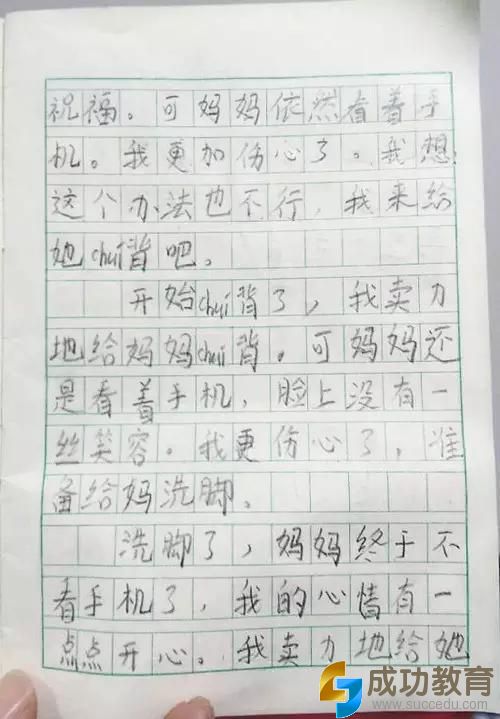 祝福。可妈妈依然看着手
机。我更加伤心了。我想
这个办法也不行，我来给
她chuí背吧。
开始chuí背了，我卖力
地给妈妈chuí背。可妈妈还
是看着手机，脸上没有一
丝笑容。我更伤心了，准
备给妈洗脚。
洗脚了，妈妈终于不
看手机了，我的心情有一
点点开心。我卖力地给她
成功教育
www.succedu.com